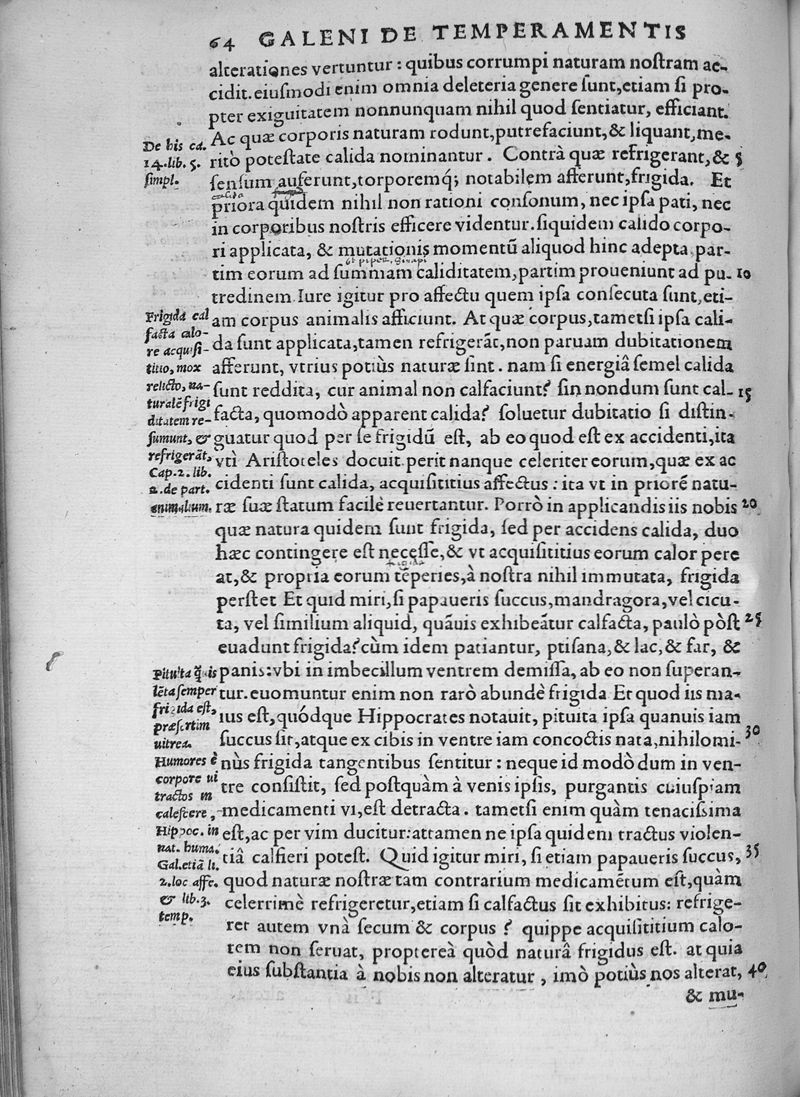 64 GALENI DE TEMPERAMENTIS
alterationes vertuntur : quibus corrumpi naturam noſtram ac-
cidit. eiuſmodi enim omnia deleteria genere ſunt,etiam ſi pro-
pter exiguitatem nonnunquam nihil quod ſentiatur, efficiant.
Ac quæ corporis naturam rodunt,putrefaciunt,& liquant,me-
De his ca.
14.lib. 5.
ſimpl.
ritò poteſtate calida nominantur . Contrà quæ refrigerant,& 5
ſenſum auferunt,torporemq; notabilem afferunt,frigida. Et
priora quidem nihil non rationi conſonum, nec ipſa pati, nec
in corporibus noſtris efficere videntur. ſiquidem calido corpo-
ri applicata, & mutationis momentū aliquod hinc adepta par-
tim eorum ad ſummam caliditatem,partim proueniunt ad pu- 10
tredinem. Iure igitur pro affectu quem ipſa conſecuta ſunt,eti-
Frigida cal
facta calo-
re acquiſi-
titio, mox
relicto, na-
turalē frigi
ditatem re-
ſumunt, &
refrigerāt,
Cap. 2. lib.
2. de part.
animalium.
am corpus animalis afficiunt. At quæ corpus,tametſi ipſa cali-
da ſunt applicata,tamen refrigerāt,non paruam dubitationem
afferunt, vtrius potiùs naturæ ſint. nam ſi energiâ ſemel calida
ſunt reddita, cur animal non calfaciunt? ſin nondum ſunt cal- 15
facta, quomodò apparent calida? ſoluetur dubitatio ſi diſtin-
guatur quod per ſe frigidū eſt, ab eo quod eſt ex accidenti,ita
vti Ariſtoteles docuit. perit nanque celeriter eorum,quæ ex ac
cidenti ſunt calida, acquiſititius affectus : ita vt in priorē natu-
ræ ſuæ ſtatum facilè reuertantur. Porrò in applicandis iis nobis 20
quæ natura quidem ſunt frigida, ſed per accidens calida, duo
hæc contingere eſt neceſſe,& vt acquiſititius eorum calor pere
at,& propria eorum tēperies,à noſtra nihil immutata, frigida
perſtet Et quid miri,ſi papaueris ſuccus,mandragora,vel cicu-
ta, vel ſimilium aliquid, quāuis exhibeātur calfacta, paulò pòſt 25
euadunt frigida? cùm idem patiantur, ptiſana,& lac,& far, &
Pituita q̄uis
lēta ſemper
frigida eſt,
præſertim
uitrea.
panis:vbi in imbecillum ventrem demiſſa, ab eo non ſuperan-
tur. euomuntur enim non rarò abundè frigida Et quod iis ma-
ius eſt,quódque Hippocrates notauit, pituita ipſa quanuis iam
ſuccus ſit,atque ex cibis in ventre iam concoctis nata,nihilomi- 30
Humores è
corpore ui
tractos in
caleſcere,
Hippoc. in
nat. huma.
Gal.etiā li.
2.loc affe.
& lib.3.
temp.
nùs frigida tangentibus ſentitur : neque id modò dum in ven-
tre conſiſtit, ſed poſtquàm à venis ipſis, purgantis cuiuſpiam
medicamenti vi,eſt detracta. tametſi enim quàm tenaciſsima
eſt,ac per vim ducitur:attamen ne ipſa quidem tractus violen-
tiâ calfieri poteſt. Quid igitur miri, ſi etiam papaueris ſuccus, 35
quod naturæ noſtræ tam contrarium medicamētum eſt,quàm
celerrimè refrigeretur,etiam ſi calfactus ſit exhibitus: refrige-
ret autem vnà ſecum & corpus ? quippe acquiſititium calo-
rem non ſeruat, propterea quòd naturâ frigidus eſt. at quia
eius ſubſtantia à nobis non alteratur , imò potiùs nos alterat, 40
& mu-